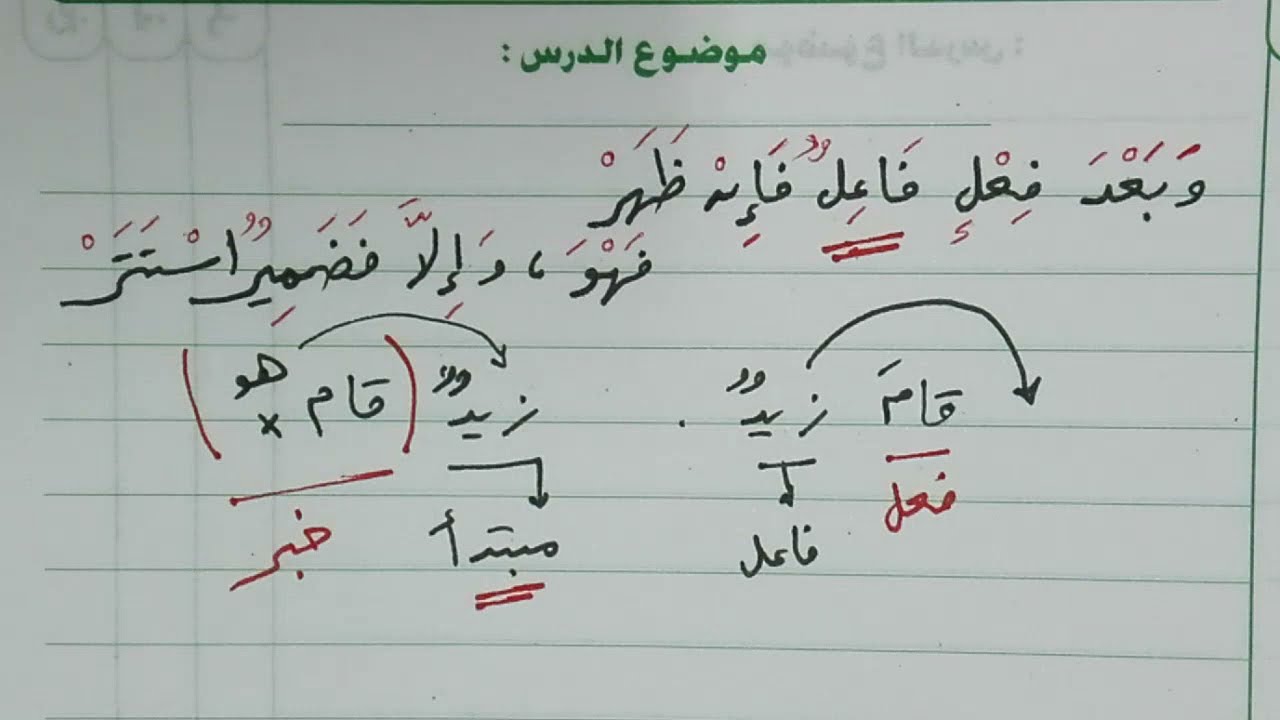 موضوع الدرس :
وَبَعْدَ فِعْلٍ فَاعِلٌ فَإِنْ ظَهَرْ
فَهْوَ ، وَإِلَّا فَضَمِيرٌ اسْتَتَرْ
قامَ زيدٌ . زيدٌ (قام هو)
فعل فاعل مبتدأ خبر